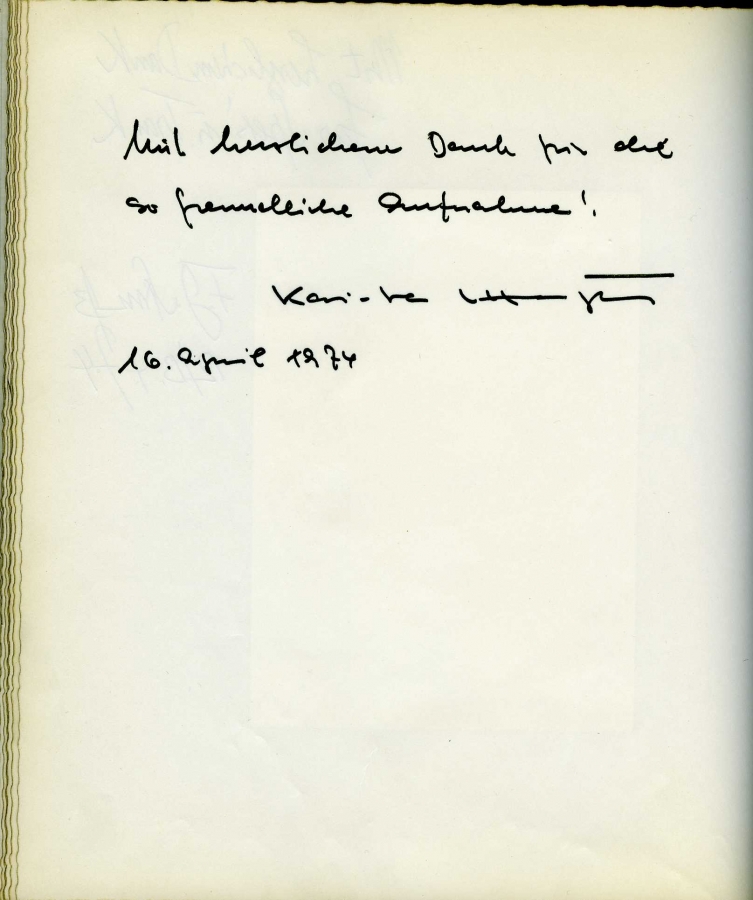 Mit herzlichem Dank für die
so freundliche Aufnahme!
16. April 1974